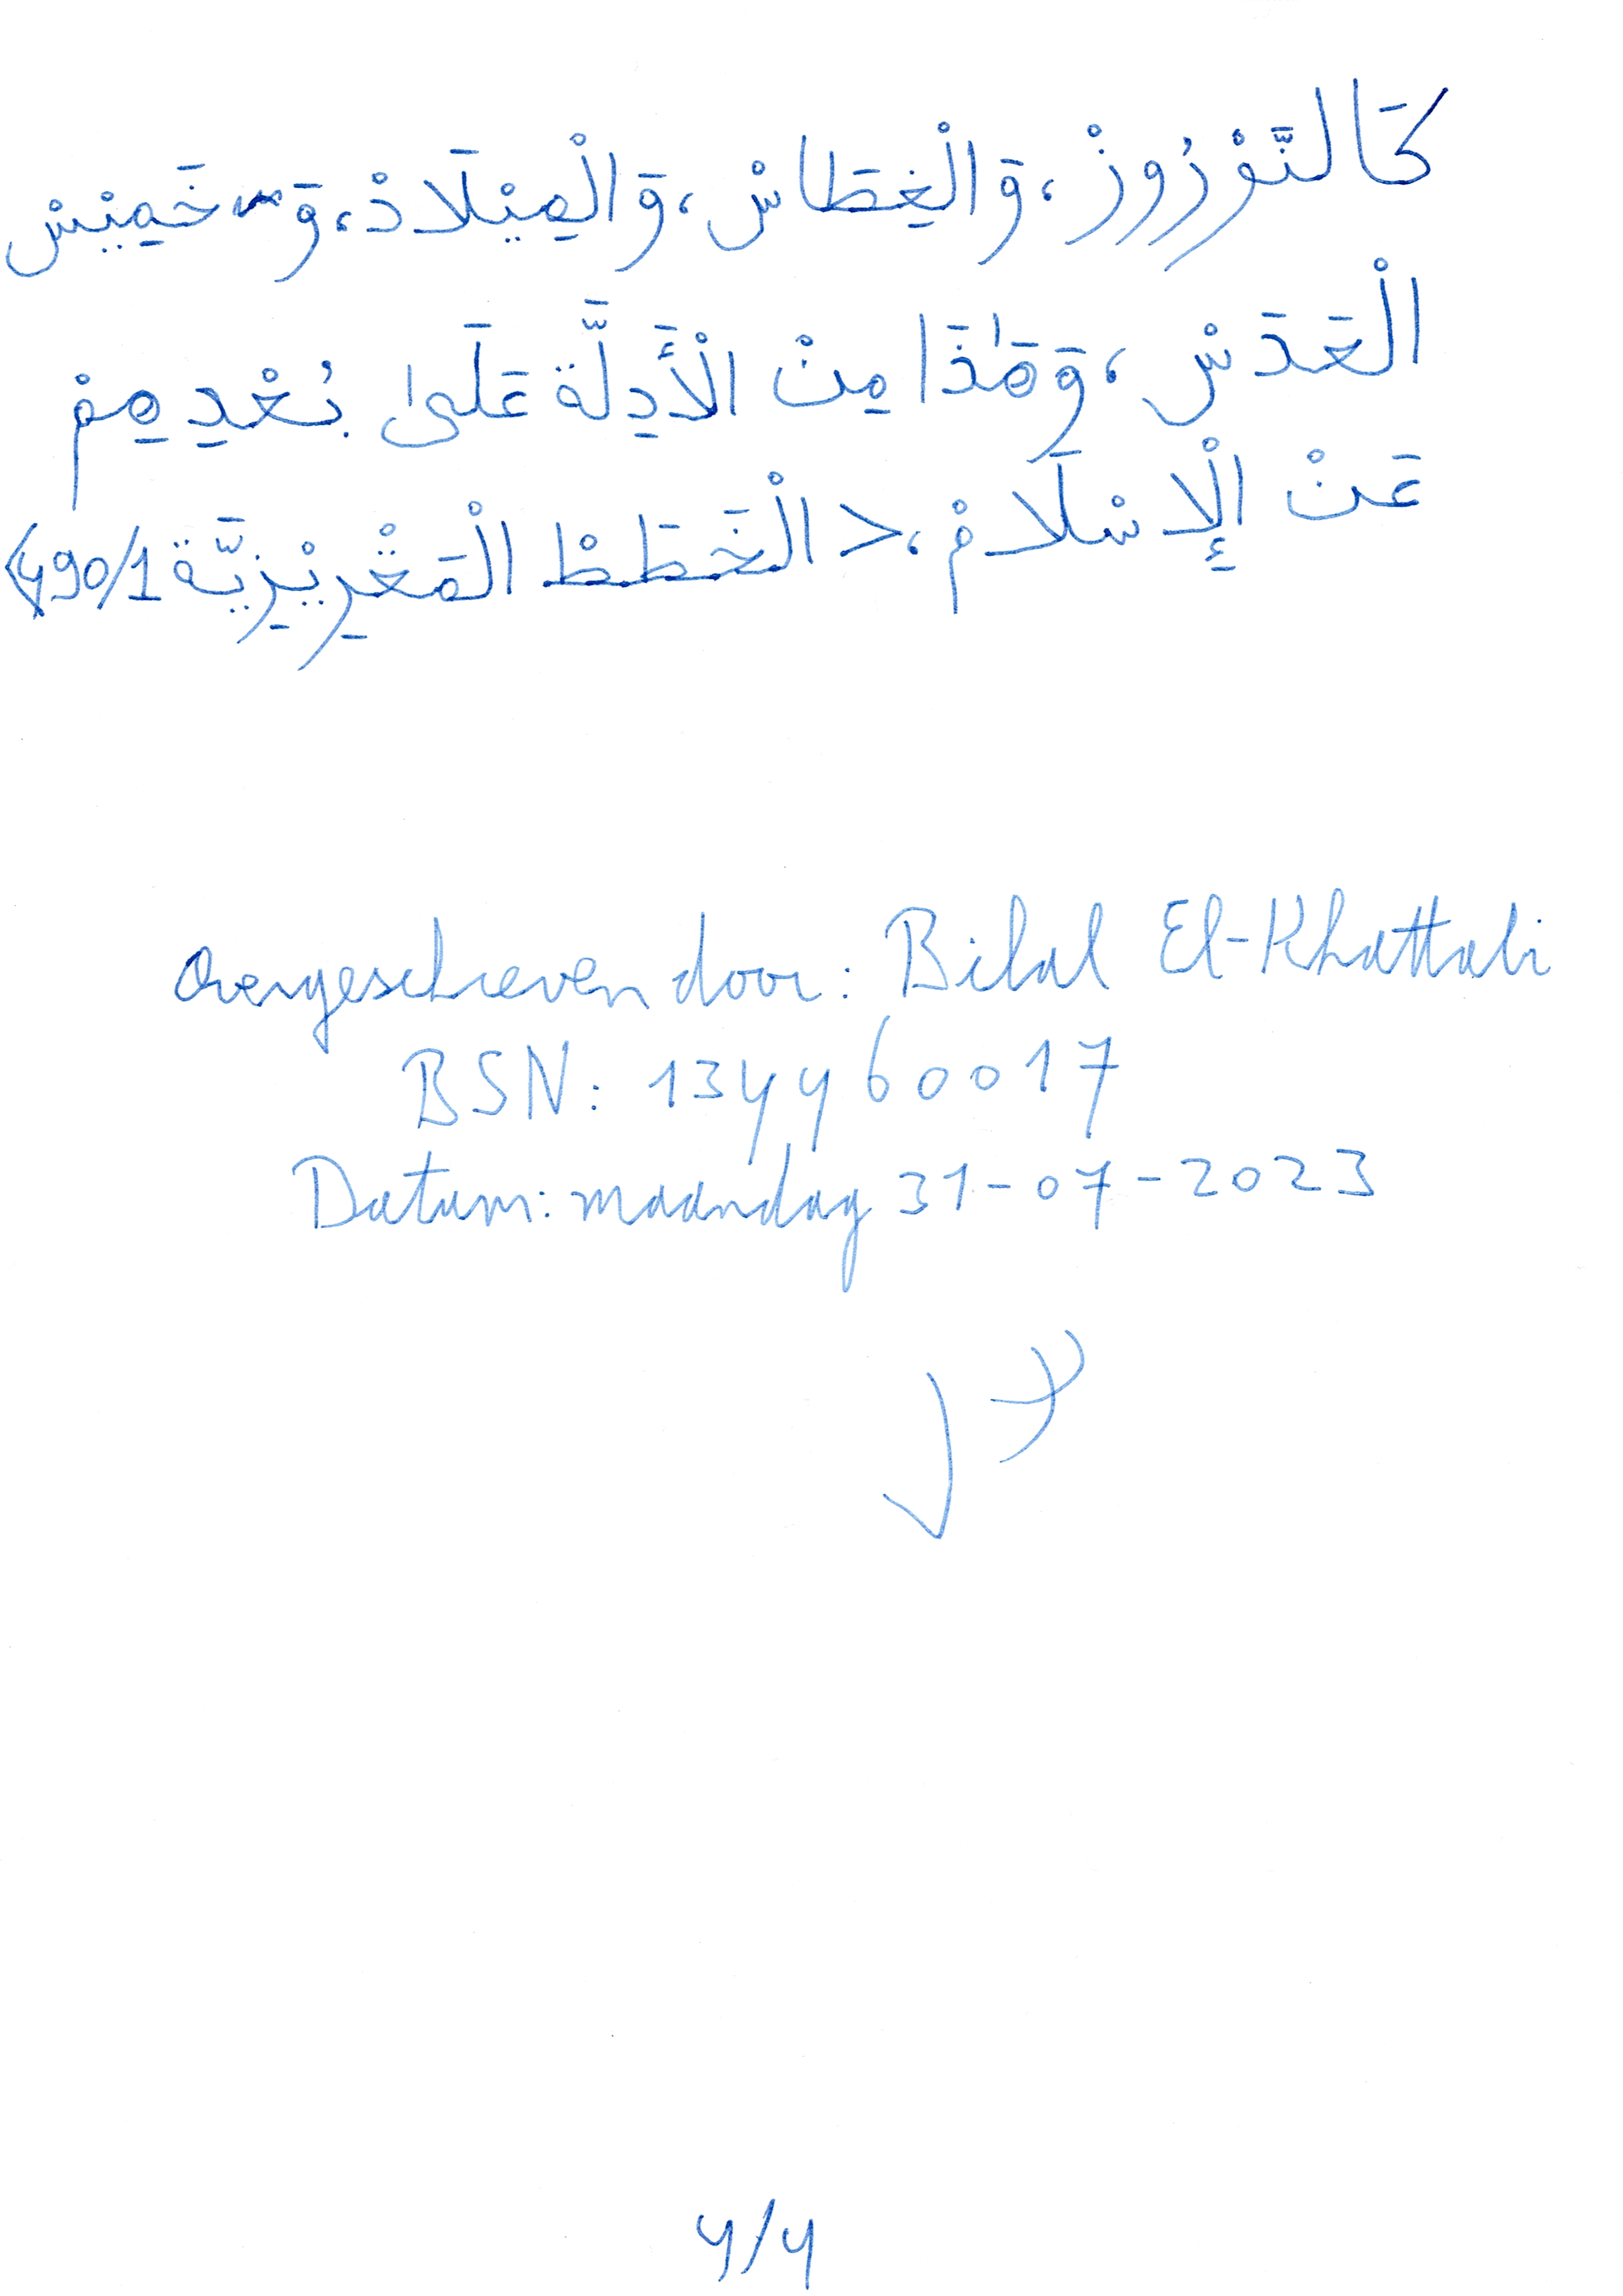 كَالنَّوْرُوزْ، وَالْغِطَاسْ، وَالْمِيْلَادْ، وَ خَمِيْسْ
الْعَدَسْ، وَهَٰذَا مِنْ الْأَدِلَّة عَلَىٰ بُعْدِهِمْ
عَنْ الْإِسْلَامْ، < الْخَطَطْ الْمَقْرِيْزِيَّة 490/1>
Overgeschreven door: Bilal El-Khattabi
BSN: 134460017
Datum: maandag 31-07-2023
4/4